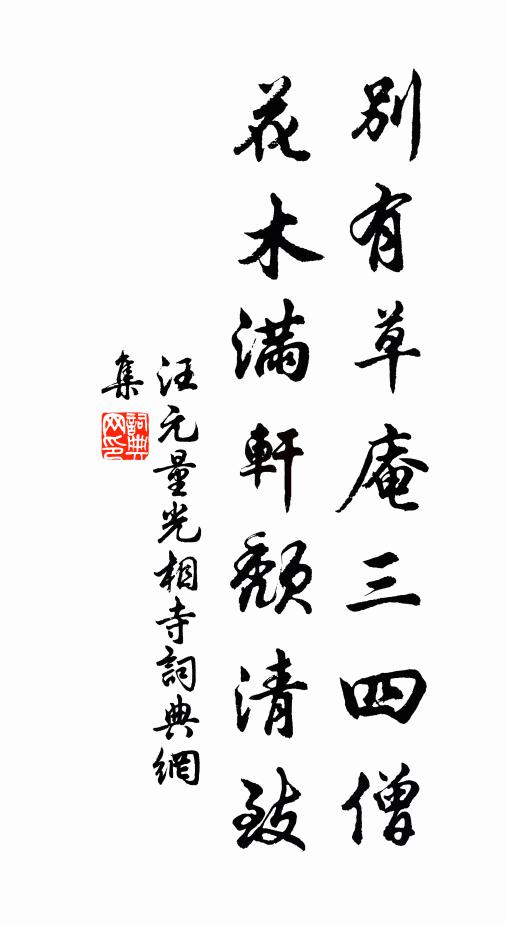 別有草庵三四僧
花木滿軒頽清致
汪元量光相寺詞典網
集
詞典網印